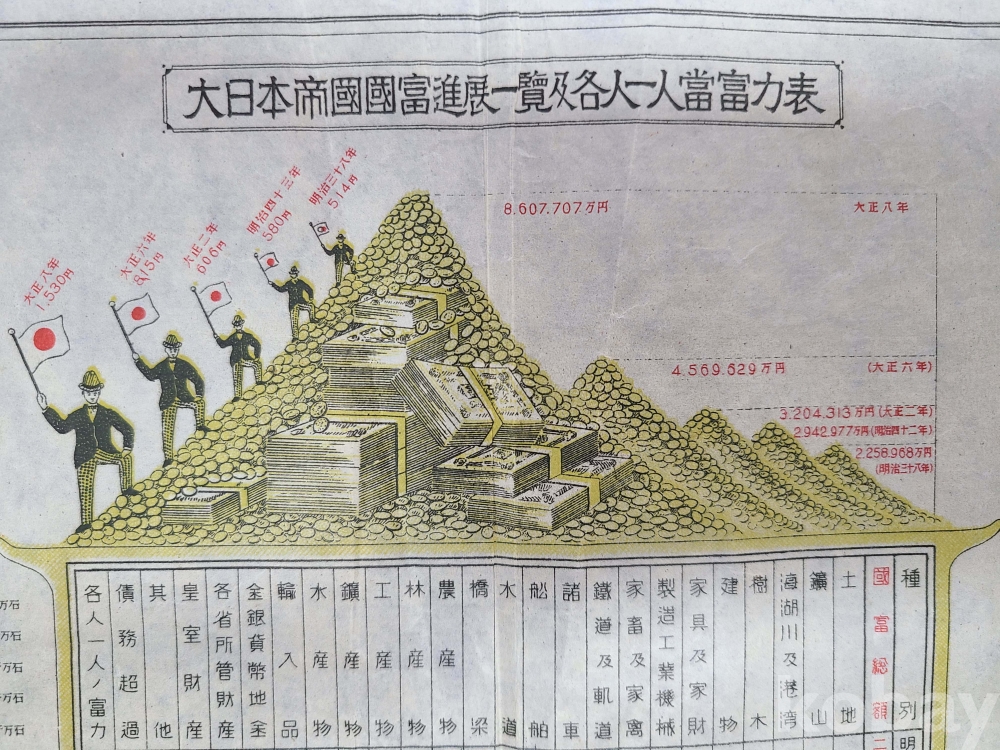 大日本帝國國富進展一覽及各人一人當富力表
明治三十八年
514円
明治四十三年
580円
大正二年
606円
大正六年
815円
大正八年
1,530円
8.607.707万円
大正八年
4.569.629万円
(大正六年)
3.204.313万円(大正二年)
2.942.977万円(明治四十二年)
2.258.968万円
(明治三十八年)
種別
國富総額
土地
鑛山
海湖川及港湾
樹木
建物
家具及家財
製造工業機械
家畜及家禽
鐵道及軌道
諸車
船舶
水道
橋梁
農産物
林産物
工産物
鑛産物
水産物
輸入品
金銀貨幣地金
各省所管財産
皇室財産
其他
債務超過
各人一人ノ富力
明
万石
万石
万石
万石
万石
kobay